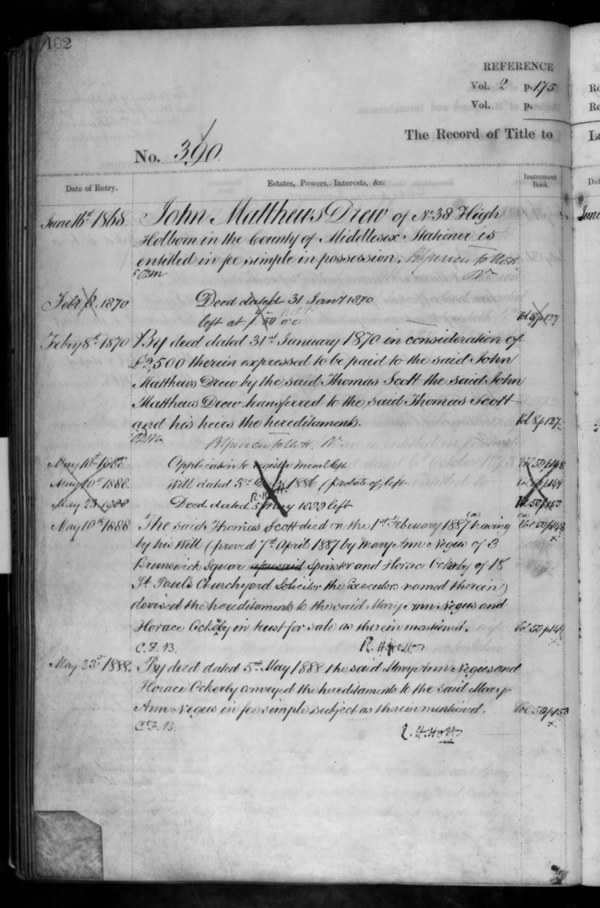 102
REFERENCE
Vol. 2 p. 175
Vol. p.
The Record of Title to
No. 390.
Date of Entry.
Estates, Powers, Interests, &c.
Instrument Book.
June 16th 1868.
John Matthews Drew of No. 38 High
Holborn in the County of Middlesex Stationer is
entitled in fee simple in possession.
Feby 8. 1870
Deed dated 31 Jany 1870
left at
Vol 8 p127
Feby 8th 1870
By deed dated 31st January 1870 in consideration of
£2,500 therein expressed to be paid to the said John
Matthews Drew by the said Thomas Scott the said John
Matthews Drew transferred to the said Thomas Scott
and his heirs the hereditaments.
Vol 8 p127.
May 10th 1888.
Application to
left
Vol 50 p148
May 10th 1888.
Will dated 5th
1886 (probate of) left
Vol 50 p149
May 23 1888
Deed dated 5 May 1888 left
Vol 50 p153
May 10th 1888
The said Thomas Scott died on the 1st February 1887 having
Vol 50 p148
by his Will (proved 7th April 1887 by Mary Ann Negus of 3
Brunswick Square aforesaid Spinster and Horace Ockerby of 18
St. Paul's Churchyard Solicitor the Executors named therein)
devised the hereditaments to the said Mary Ann Negus and
Horace Ockerby in trust for sale as therein mentioned.
Vol. 50 p149
C.F.B.
R. H. Holt
May 23rd 1888.
By deed dated 5th May 1888 the said Mary Ann Negus and
Horace Ockerby conveyed the hereditaments to the said Mary
Ann Negus in fee simple subject as therein mentioned.
Vol. 50 p153
C.F.B.
R. H. Holt